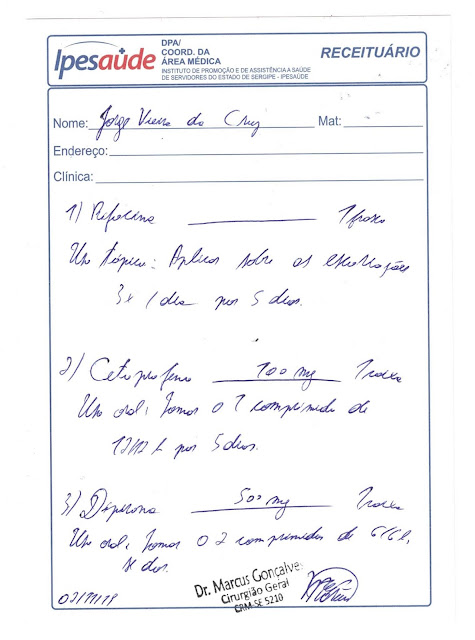 Ipesaúde
DPA/
COORD. DA
ÁREA MÉDICA
INSTITUTO DE PROMOÇÃO E DE ASSISTÊNCIA A SAÚDE
DE SERVIDORES DO ESTADO DE SERGIPE - IPESAÚDE
RECEITUÁRIO
Nome: Jorge Vieira da Cruz Mat:
Endereço:
Clínica:
1) Rifocina 1 frasco
Uso tópico: Aplicar sobre as escoriações
3x / dia por 5 dias.
2) Cetoprofeno 100 mg 1 caixa
Uso oral: Tomar 01 comprimido de
12/12 h por 5 dias.
3) Dipirona 500 mg 1 caixa
Uso oral: Tomar 02 comprimidos de 6/6 h,
dor.
Dr. Marcus Gonçalves
Cirurgião Geral
CRM-SE 5210